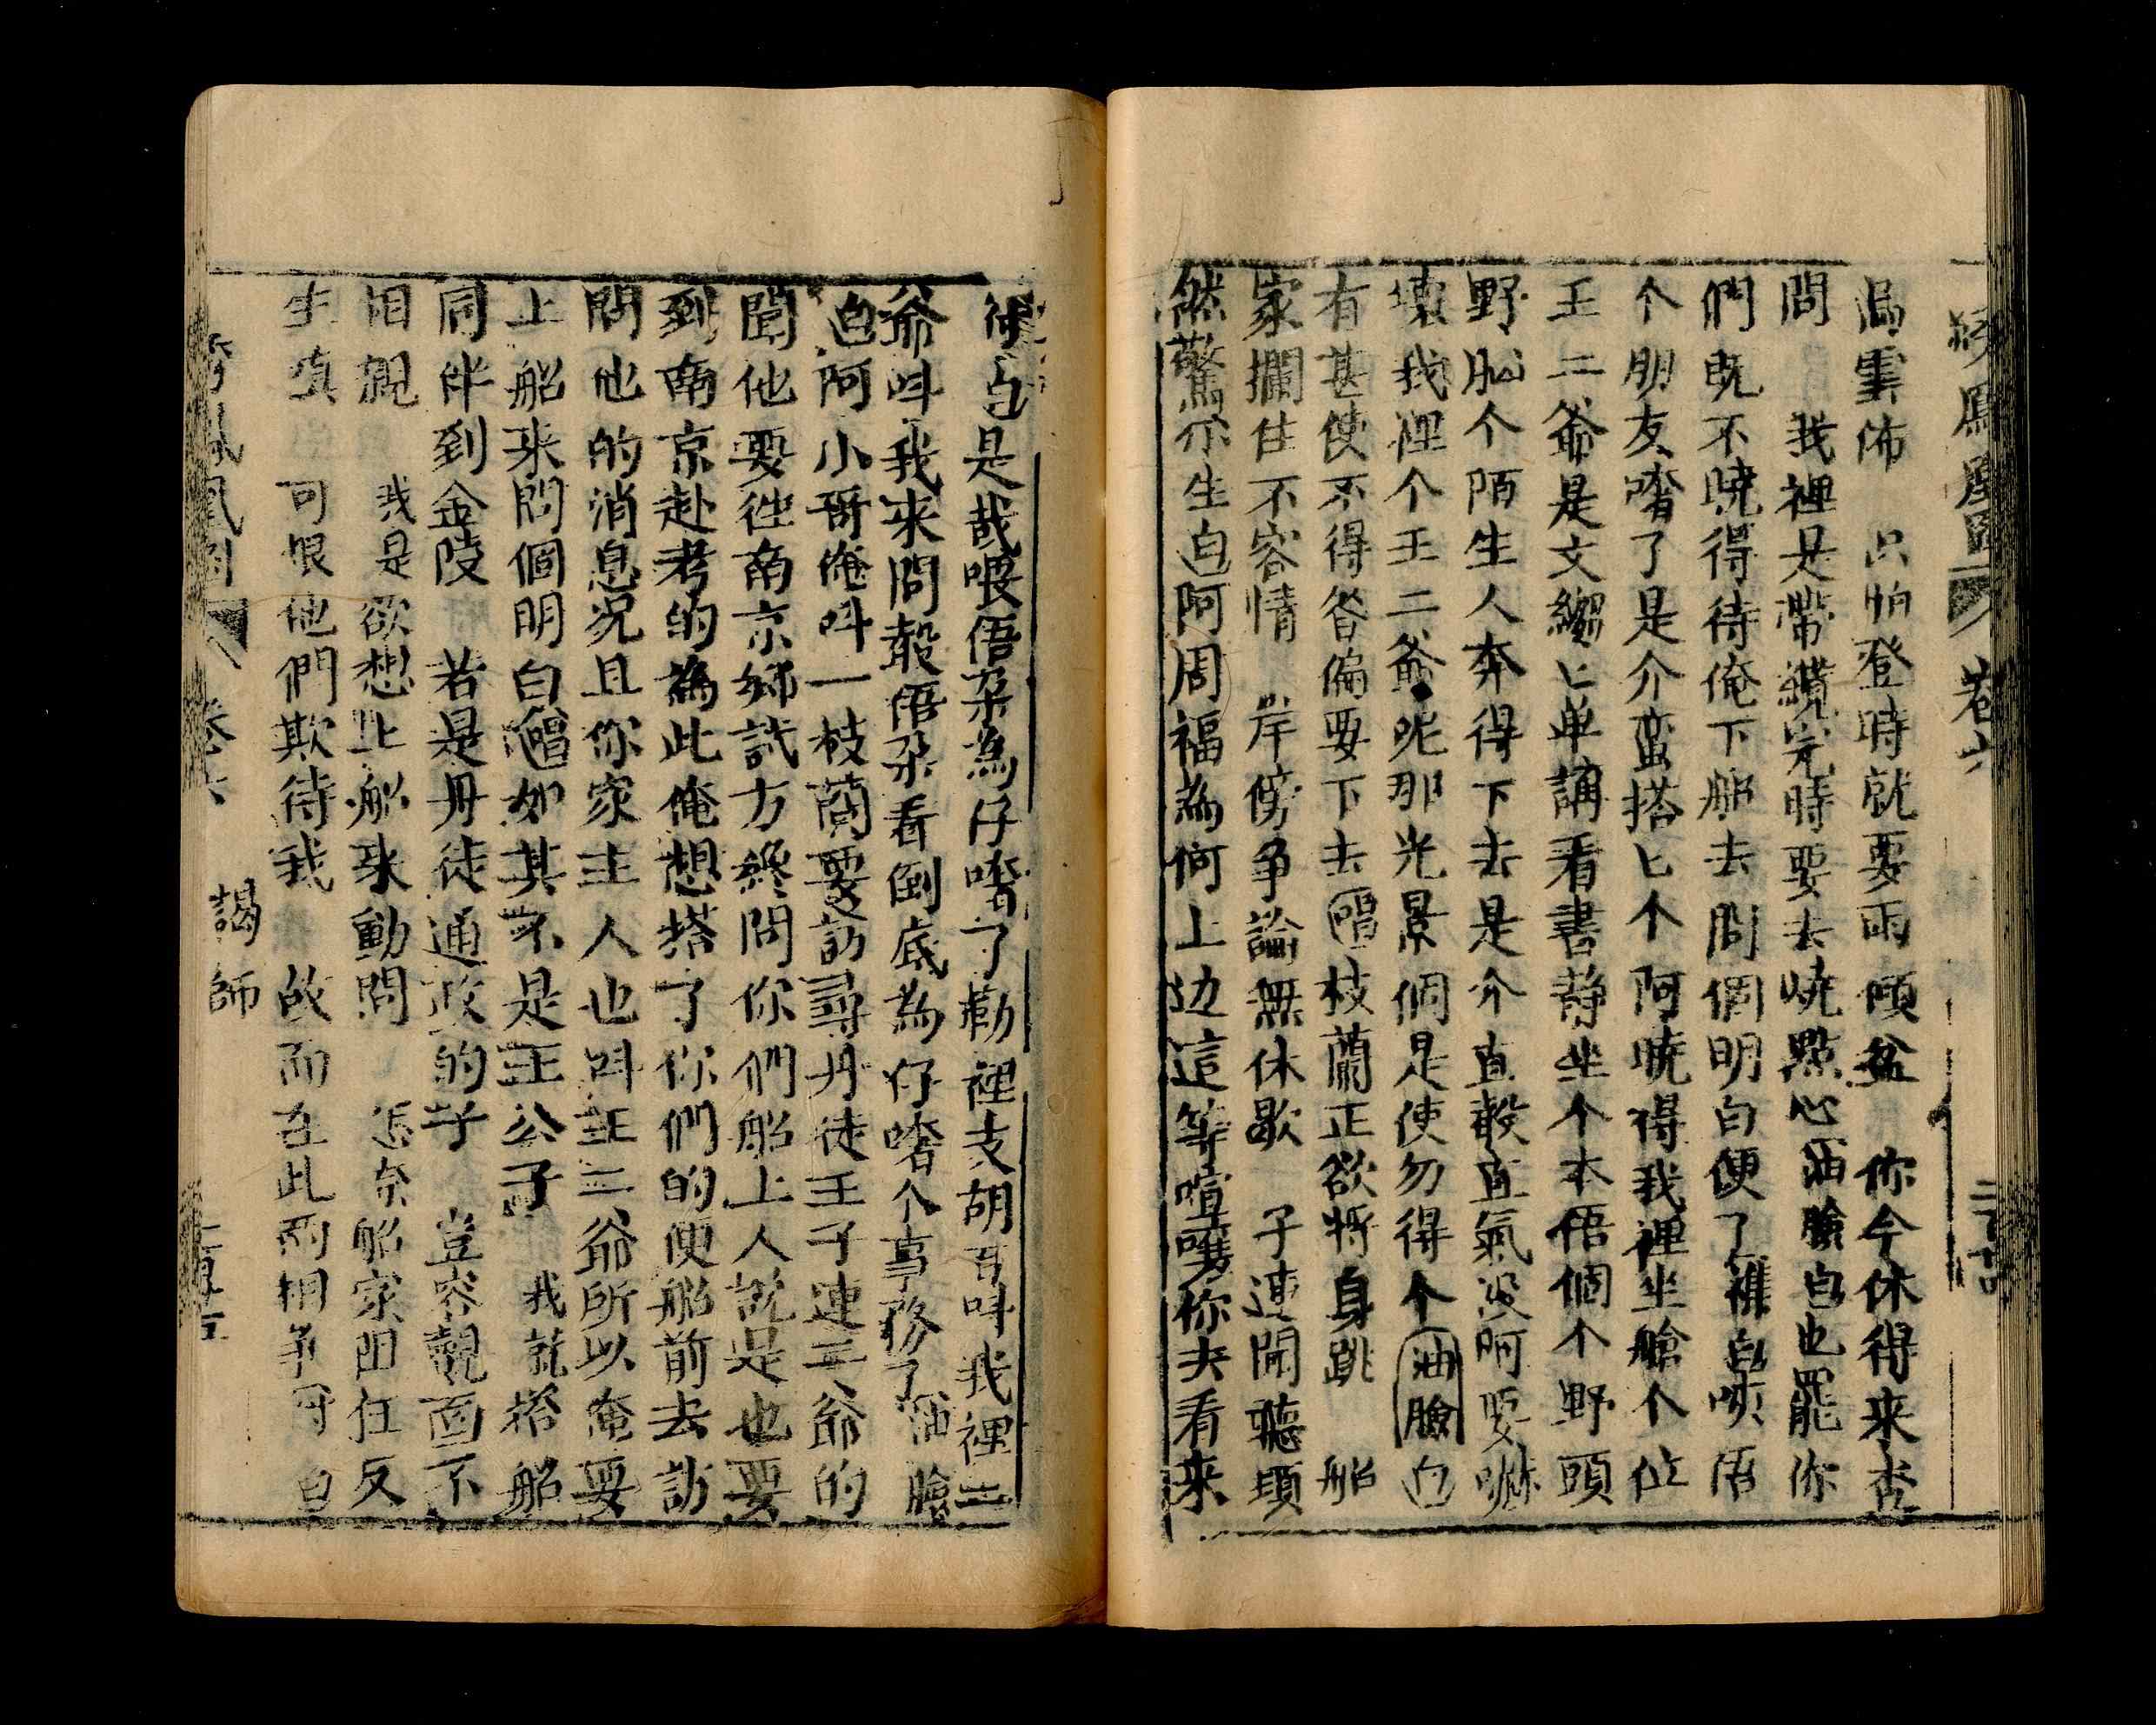 卷六
烏雲佈 只怕登時就要雨傾盆 你今休得来查
問 我裡是帶纜完時要去燒點心油臉白也罷你
們既不曉得待俺下船去問個明白便了 白 唔
个朋友 了是介蛮搭匕个 阿曉得我裡坐艙个位
王二爺是文縐匕单誦看書静坐个本 個个野頭
野腦个陌生人奔得下去是介直 直氣没阿要
壞我裡个王二爺呢那光景個是使勿得个油臉白
有甚使不得 偏要下去唱枝蘭正欲将身跳 船
家攔住不容情 岸傍争論無休歇 子連聞聽頃
然驚 生白阿周福為何上边這等喧 你去看来
白是哉喂 為仔 了勒裡支胡 叫我裡二
爺叫我来問 看倒底為仔 个事務了油臉
白阿小哥俺叫一枝蘭要訪尋丹徒王子連二爺的
聞他要往南京鄉試方終問你們船上人說是也要
到南京赴考的為此俺想搭了你們的便船前去訪
問他的消息况且你家主人也叫王二爺所以俺要
上船来問個明白唱如其不是王公子 我就搭船
同伴到金陵 若是丹徒通政的子 豈容覿面不
相親 我是欲想上船来動問 怎奈船家阻住反
生嗔 可恨他們欺待我 故而在此両相争 白
謁師
卷六